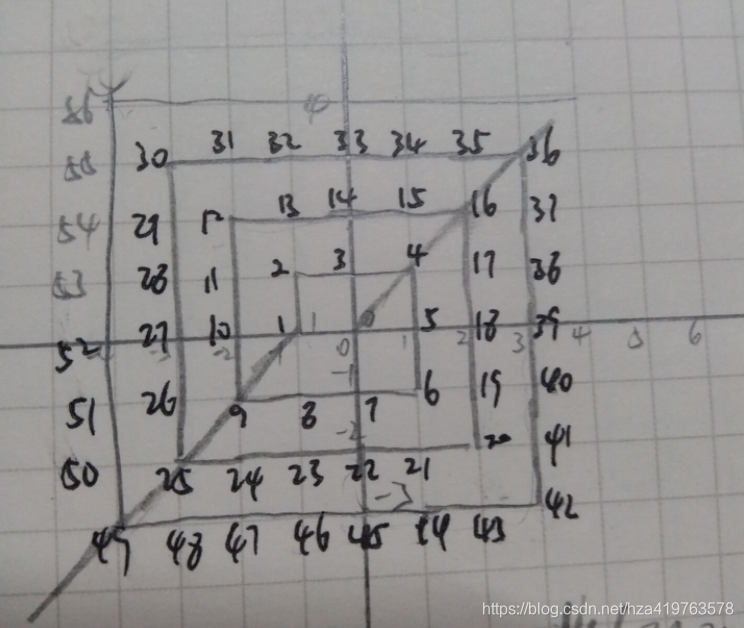 56
55 30 31 32 33 34 35 36
54 29 12 13 14 15 16 37
53 28 11 2 3 4 17 38
52 27 10 1 1 0 5 18 39
-2 0 1 2 3 4 5 6
-1
51 26 9 8 7 6 19 40
-2
50 25 24 23 22 21 20 41
-3
49 48 47 46 45 44 43 42
https://blog.csdn.net/hza419763578